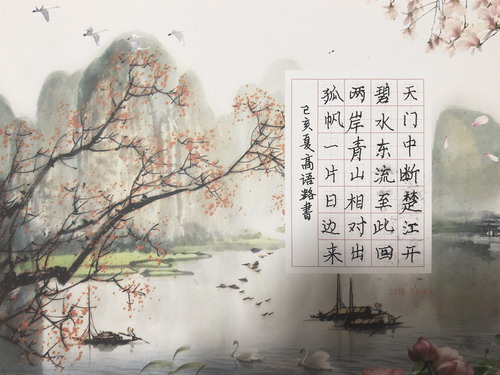 天门中断楚江开
碧水东流至此回
两岸青山相对出
孤帆一片日边来
己亥夏高语路书